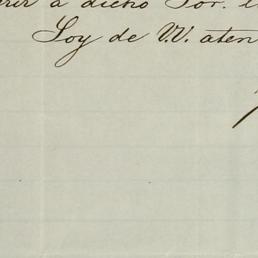 a dicho Sor.
Soy de V.V. aten